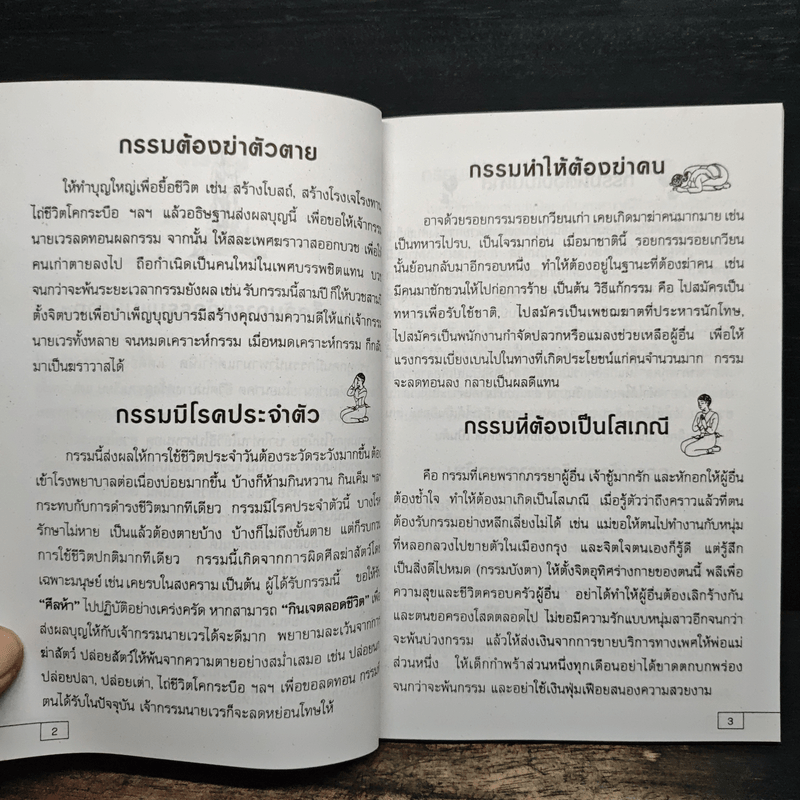 กรรมต้องฆ่าตัวตาย
ให้ทำบุญใหญ่เพื่อยื้อชีวิต เช่น สร้างโบสถ์, สร้างโรงเจโรงทาน
ไถ่ชีวิตโคกระบือ ฯลฯ แล้วอธิษฐานส่งผลบุญนี้ เพื่อขอให้เจ้ากรรม
นายเวรลดทอนผลกรรม จากนั้น ให้สละเพศฆราวาสออกบวช เพื่อให้
คนเก่าตายลงไป ถือกำเนิดเป็นคนใหม่ในเพศบรรพชิตแทน บวช
จนกว่าจะพ้นระยะเวลากรรมยังผล เช่น รับกรรมนี้สามปี ก็ให้บวชสามปี
ตั้งจิตบวชเพื่อบำเพ็ญบุญบารมีสร้างคุณงามความดีให้แก่เจ้ากรรม
นายเวรทั้งหลาย จนหมดเคราะห์กรรม เมื่อหมดเคราะห์กรรม ก็กลับ
มาเป็นฆราวาสได้
กรรมมีโรคประจำตัว
กรรมนี้ส่งผลให้การใช้ชีวิตประจำวันต้องระวัดระวังมากขึ้น ต้อง
เข้าโรงพยาบาลต่อเนื่องบ่อยมากขึ้น บ้างก็ห้ามกินหวาน กินเค็ม ฯลฯ
กระทบกับการดำรงชีวิตมากทีเดียว กรรมมีโรคประจำตัวนี้ บางโรค
รักษาไม่หาย เป็นแล้วต้องตายบ้าง บ้างก็ไม่ถึงขั้นตาย แต่ก็รบกวน
การใช้ชีวิตปกติมากทีเดียว กรรมนี้เกิดจากการผิดศีลฆ่าสัตว์โดย
เฉพาะมนุษย์ เช่น เคยรบในสงคราม เป็นต้น ผู้ได้รับกรรมนี้ ขอให้รับ
“ศีลห้า” ไปปฏิบัติอย่างเคร่งครัด หากสามารถ “กินเจตลอดชีวิต” เพื่อ
ส่งผลบุญให้กับเจ้ากรรมนายเวรได้จะดีมาก พยายามละเว้นจากการ
ฆ่าสัตว์ ปล่อยสัตว์ให้พ้นจากความตายอย่างสม่ำเสมอ เช่น ปล่อยนก
ปล่อยปลา, ปล่อยเต่า, ไถ่ชีวิตโคกระบือ ฯลฯ เพื่อขอลดทอน กรรมที่
ตนได้รับในปัจจุบัน เจ้ากรรมนายเวรก็จะลดหย่อนโทษให้
2
กรรมทำให้ต้องฆ่าคน
อาจด้วยรอยกรรมรอยเกวียนเก่า เคยเกิดมาฆ่าคนมากมาย เช่น
เป็นทหารไปรบ, เป็นโจรมาก่อน เมื่อมาชาตินี้ รอยกรรมรอยเกวียน
นั้นย้อนกลับมาอีกรอบหนึ่ง ทำให้ต้องอยู่ในฐานะที่ต้องฆ่าคน เช่น
มีคนมาชักชวนให้ไปก่อการร้าย เป็นต้น วิธีแก้กรรม คือ ไปสมัครเป็น
ทหารเพื่อรับใช้ชาติ, ไปสมัครเป็นเพชฌฆาตที่ประหารนักโทษ,
ไปสมัครเป็นพนักงานกำจัดปลวกหรือแมลงช่วยเหลือผู้อื่น เพื่อให้
แรงกรรมเบี่ยงเบนไปในทางที่เกิดประโยชน์แก่คนจำนวนมาก กรรม
จะลดทอนลง กลายเป็นผลดีแทน
กรรมที่ต้องเป็นโสเภณี
คือ กรรมที่เคยพรากภรรยาผู้อื่น เจ้าชู้มากรัก และหักอกให้ผู้อื่น
ต้องช้ำใจ ทำให้ต้องมาเกิดเป็นโสเภณี เมื่อรู้ตัวว่าถึงคราวแล้วที่ตน
ต้องรับกรรมอย่างหลีกเลี่ยงไม่ได้ เช่น แม่ขอให้ตนไปทำงานกับหนุ่ม
ที่หลอกลวงไปขายตัวในเมืองกรุง และจิตใจตนเองก็รู้ดี แต่รู้สึก
เป็นสิ่งดีไปหมด (กรรมบังตา) ให้ตั้งจิตอุทิศร่างกายของตนนี้ พลีเพื่อ
ความสุขและชีวิตครอบครัวผู้อื่น อย่าได้ทำให้ผู้อื่นต้องเลิกร้างกัน
และตนขอครองโสดตลอดไป ไม่ขอมีความรักแบบหนุ่มสาวอีกจนกว่า
จะพ้นบ่วงกรรม แล้วให้ส่งเงินจากการขายบริการทางเพศให้พ่อแม่
ส่วนหนึ่ง ให้เด็กกำพร้าส่วนหนึ่งทุกเดือนอย่าได้ขาดตกบกพร่อง
จนกว่าจะพ้นกรรม และอย่าใช้เงินฟุ่มเฟือยสนองความสวยงาม
3